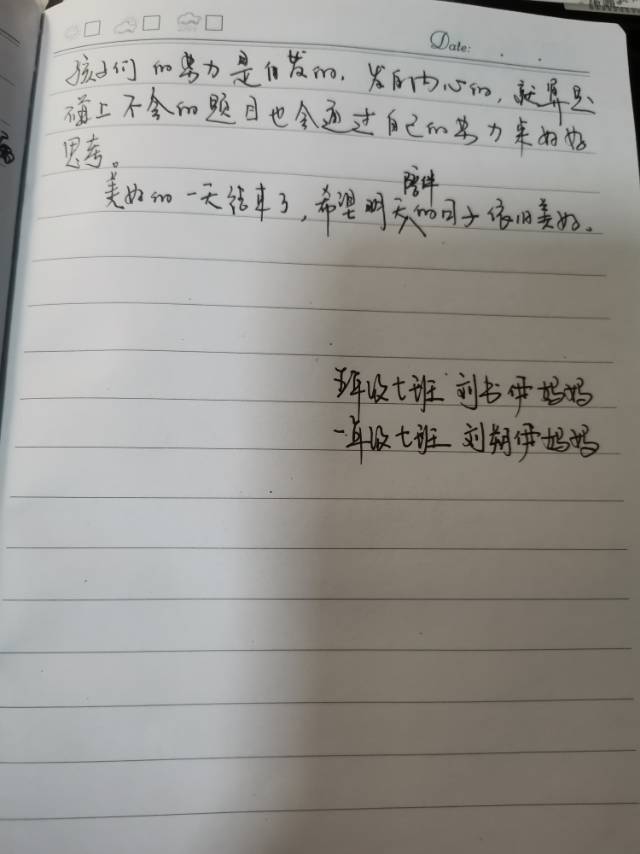 Date:
孩子们的努力是自发的,发自内心的,就算是
碰上不会的题目也会通过自己的努力来好好
思考。
美好的一天结束了,希望明天陪伴的日子依旧美好。
五年级七班 刘书伊妈妈
一年级七班 刘朔伊妈妈